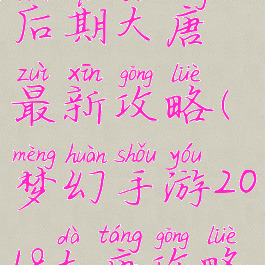 后期大唐
zuì xīn gōng lüè
最新攻略(
mèng huàn shǒu yóu
梦幻手游20
dà táng gōng lüè
18大唐攻略